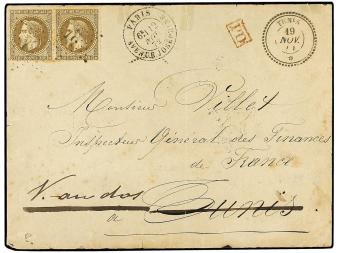 PARIS
TUNIS
19
NOV.
PD
Monsieur Villet
Inspecteur Général des Finances
de France
V. au dos
à Tunis